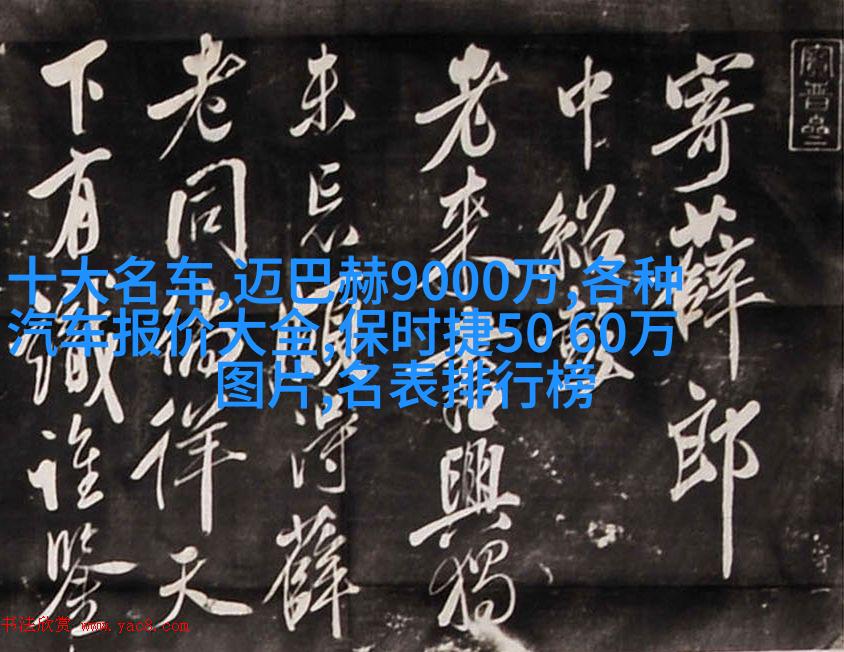 寄薛郎
中紹彭
老来書興獨
未忘頗得薛
老同徜徉天
下有識谁鑒
十大名车,迈巴赫9000万,各种
汽车报价大全,保时捷50 60万
图片,名表排行榜
书法欣赏 www.yac8.com